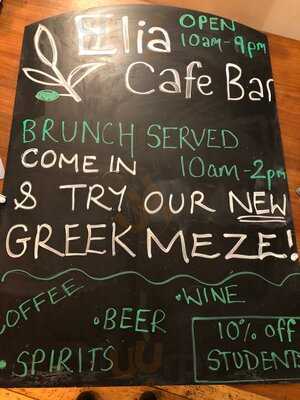 Elia OPEN
10am-9pm
Cafe Bar
BRUNCH SERVED
COME IN 10am-2pm
& TRY OUR NEW
GREEK MEZE!
COFFEE •WINE
•BEER 10% off
•SPIRITS STUDENTS